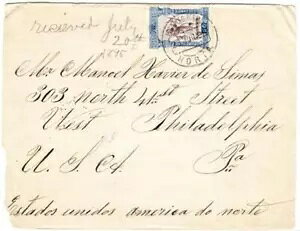 received July
20th
1895
HORTA
Mr Manoel Xavier de Simas
303 North 41st Street
West Philadelphia
Pa
U. S. A
Estados unidos america do norte